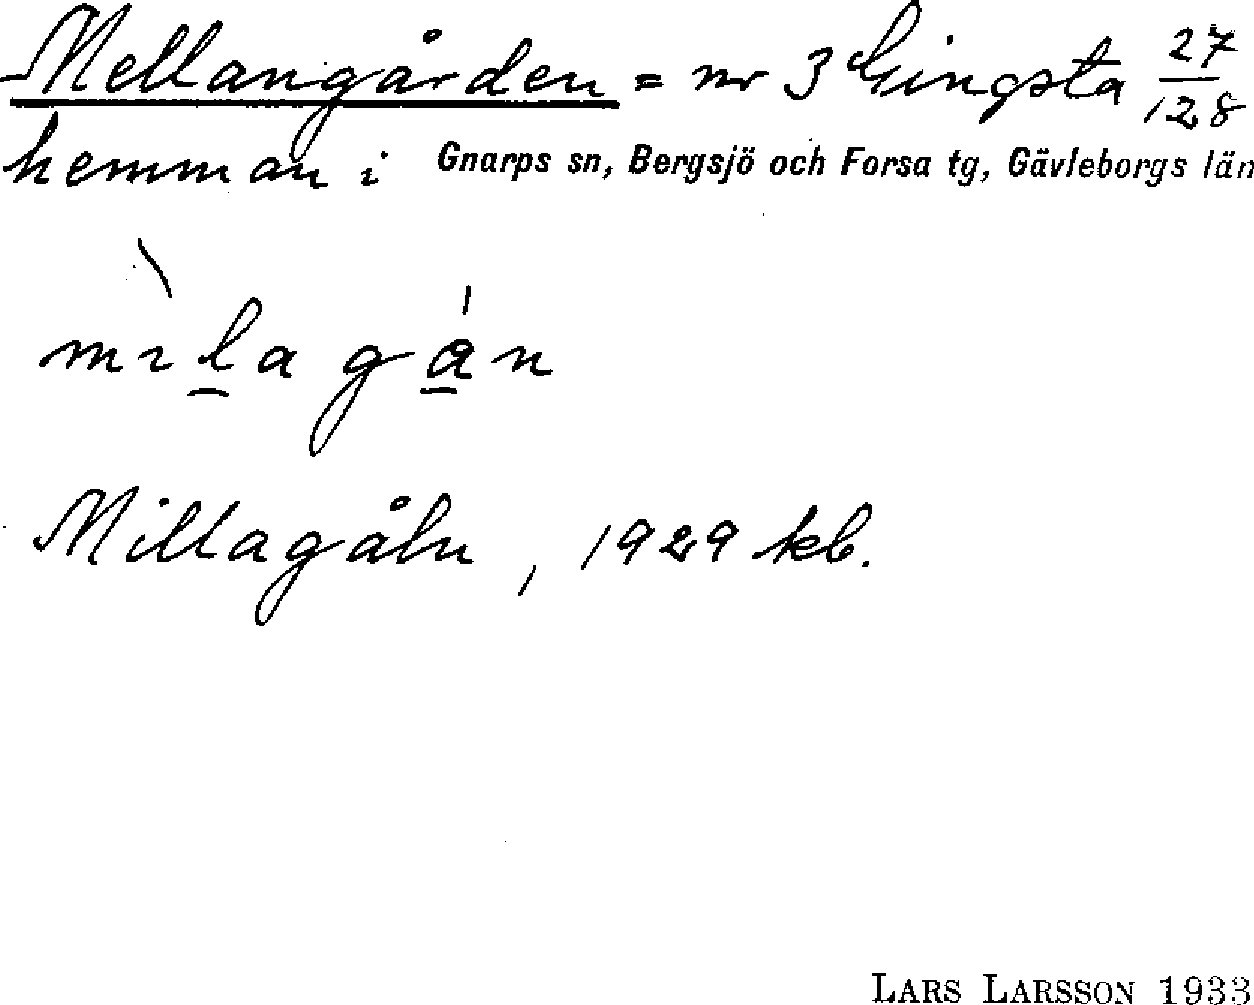 Mellangården = nr 3 Gingsta 27/128
hemman i Gnarps sn, Bergsjö och Forsa tg, Gävleborgs län
mìla gán
Millagåln, 1929 kb.
LARS LARSSON 1933